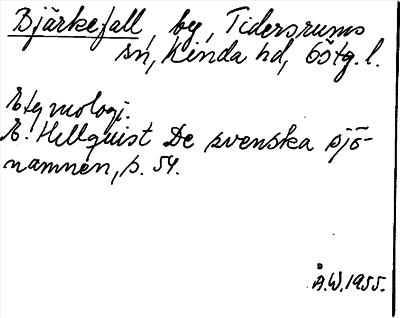 Bjärkefall, by, Tidersrums
sn, Kinda hd, Östg. l.
Etymologi.
E. Hellquist De svenska sjö-
namnen, p. 54.
Å.W. 1955.